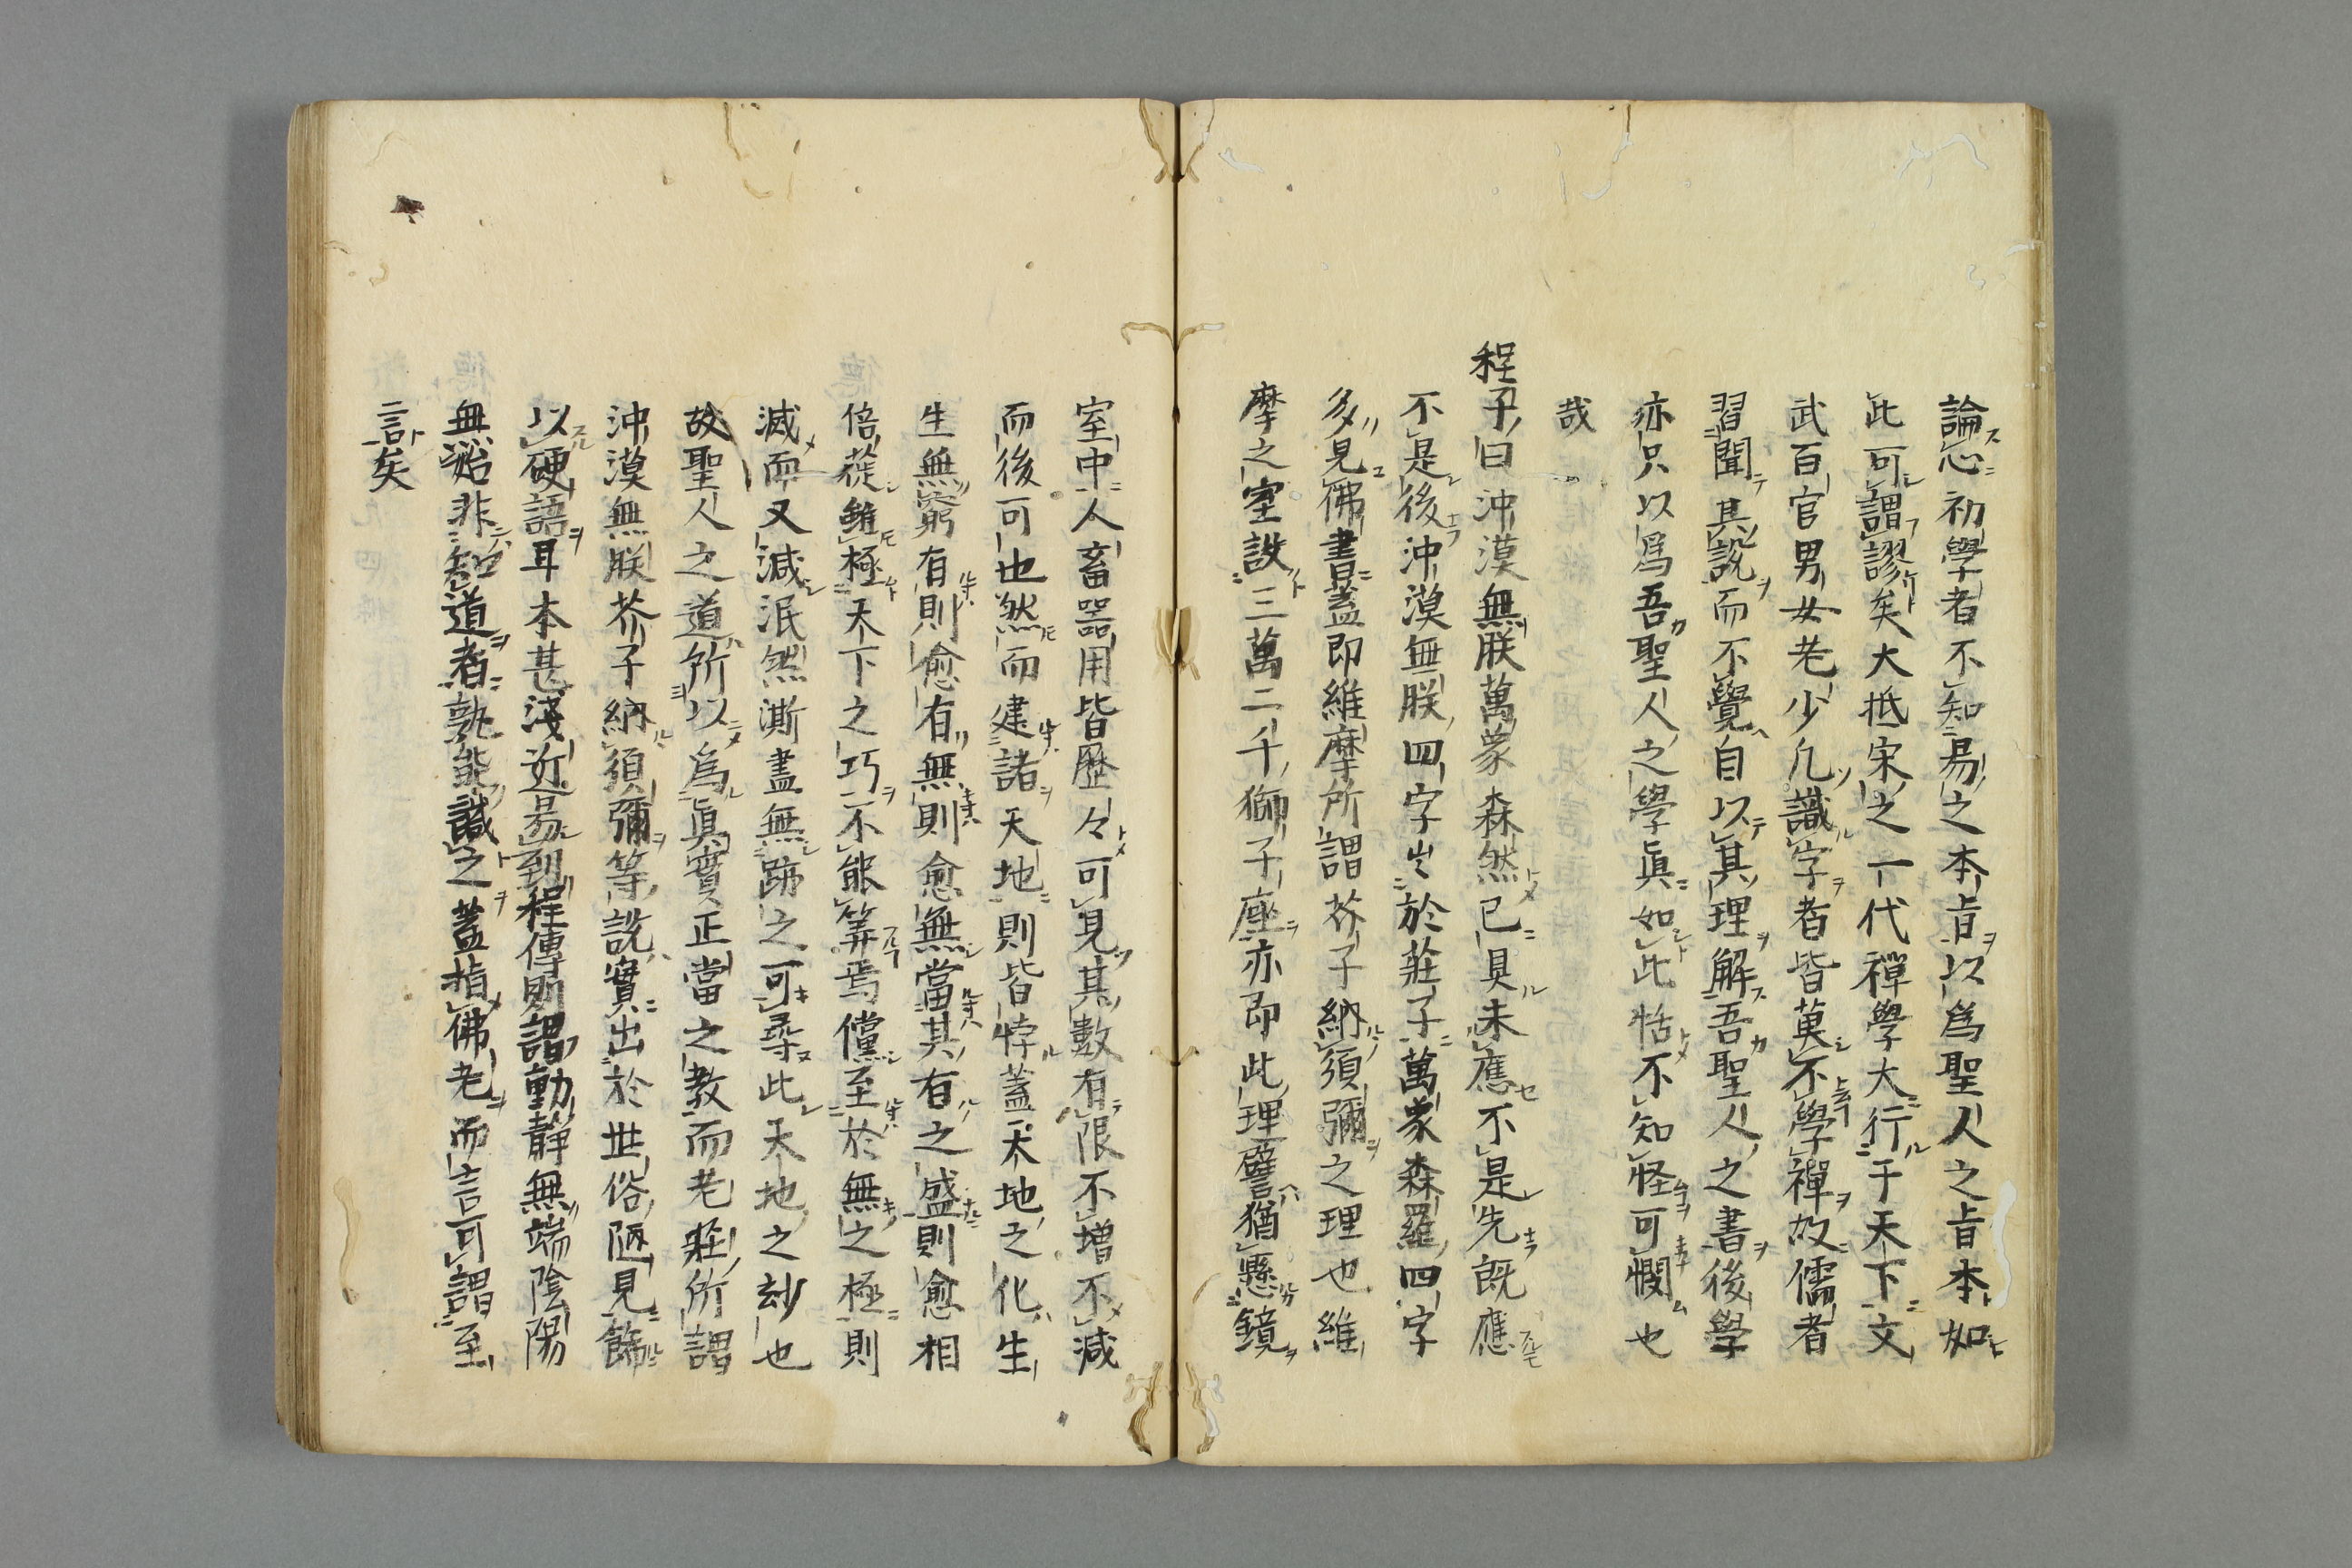 論心初學者不知易之本旨以爲聖人之旨本如
此可謂謬矣大抵宋之一代禪學大行于天下文
武百官男女老少凡識字者皆莫不學禪故儒者
習聞其説而不覺自以其理解吾聖人之書後學
亦只以爲吾聖人之學眞如此恬不知怪可憫也
哉
程子曰沖漠無朕萬象森然已具未應不是先既應
不是後沖漠無朕四字出於莊子萬象森羅四字
多見佛書蓋即維摩所謂芥子納須彌之理也維
摩之室設三萬二千獅子座亦即此理譬猶懸鏡
室中人畜器用皆歷々可見其數有限不増不減
而後可也然而建諸天地則皆悖蓋天地之化生
生無窮有則愈有無則愈無當其有之盛則愈相
倍蓰雖極天下之巧不能筭焉儻至於無之極則
滅而又減泯然澌盡無跡之可尋此天地之玅也
故聖人之道所以爲眞實正當之教而老莊所謂
沖漠無朕芥子納須彌等説實出於世俗陋見飾
以硬語耳本甚淺近易到程傳則謂動靜無端陰陽
無始非知道者孰能識之蓋指佛老而言可謂至
言矣